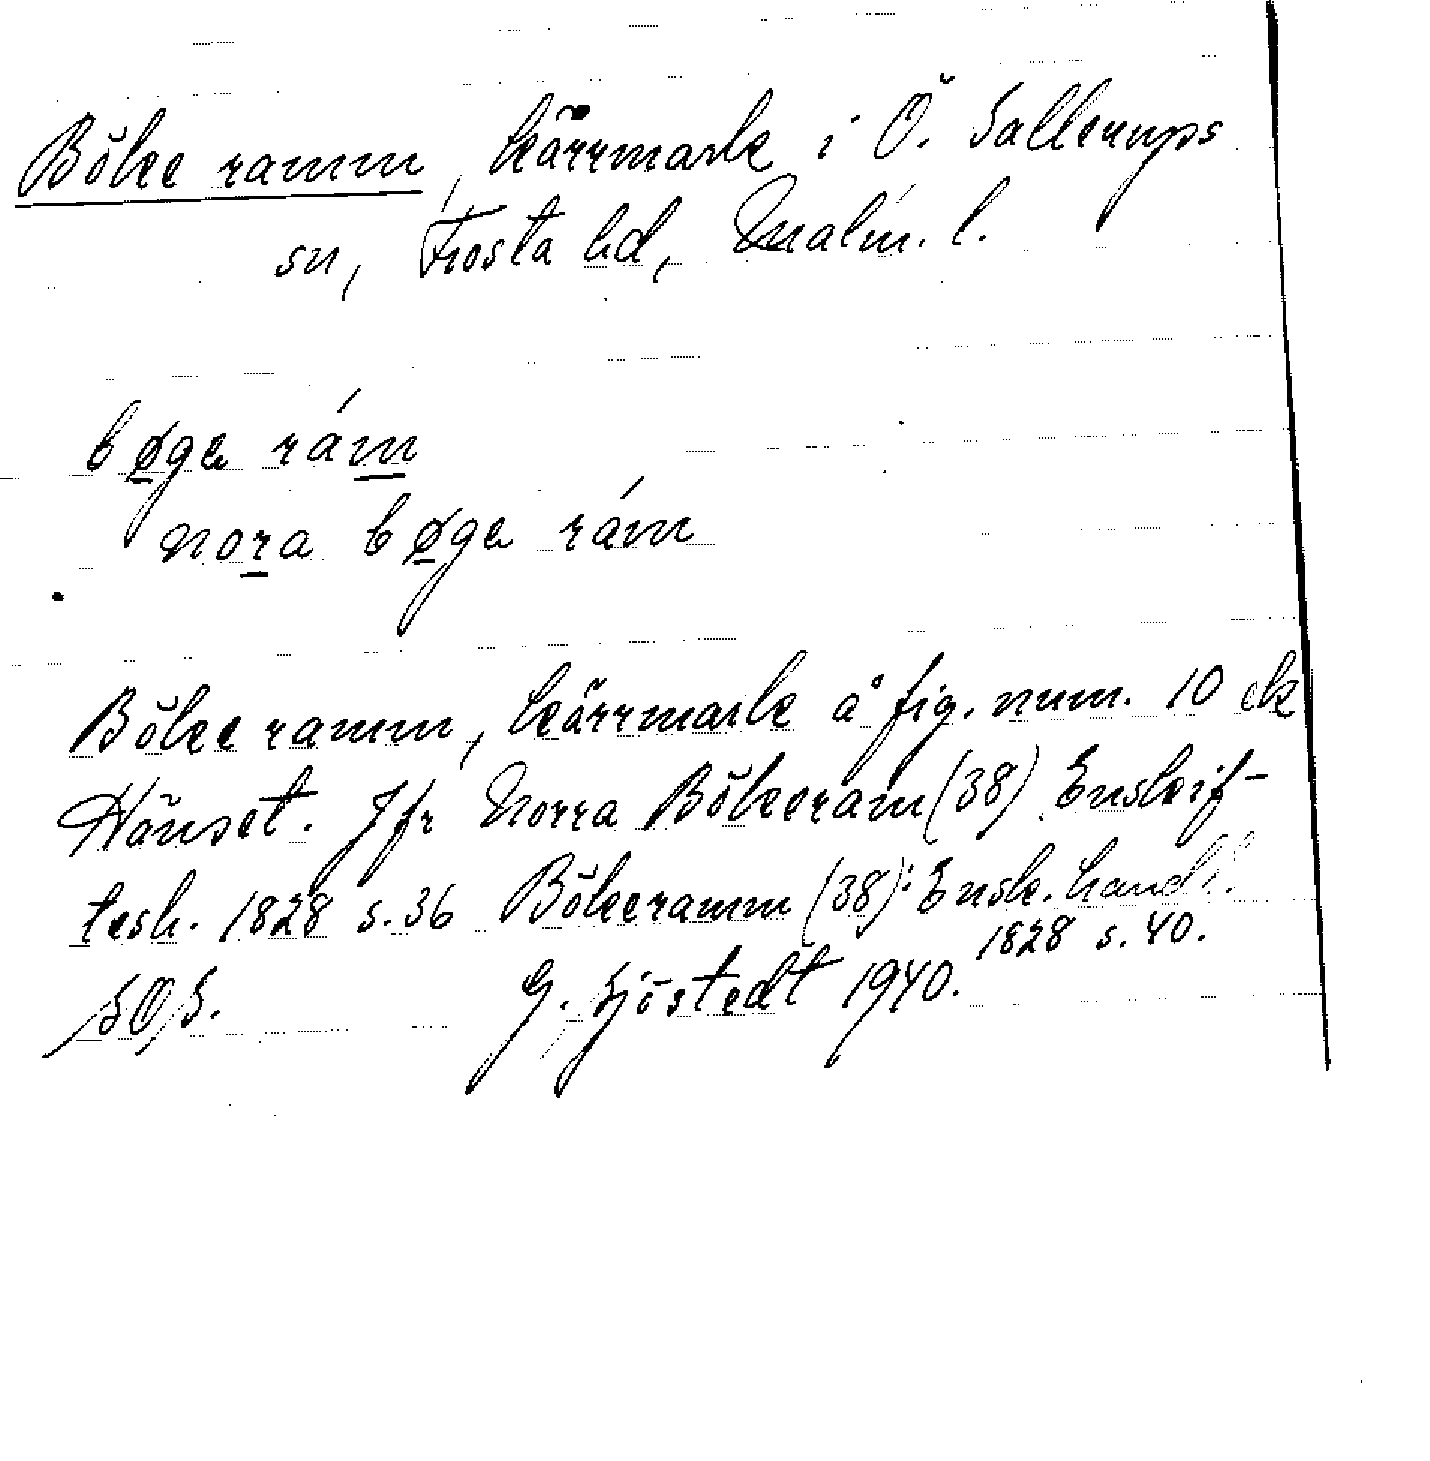 Böke ramm, kärrmark i Ö. Sallerups
sn, Frosta hd, Malm. l.
bøge rám
nora bøge rám
Böke ramm, kärrmark å fig. num. 10 ek
Hänset. Jfr Norra Bökeram (38) Enskif-
tesh. 1828 s. 36 Bökeramm (38): Ensk. handl.
1828 s. 40.
SOS. G. Sjöstedt 1940.